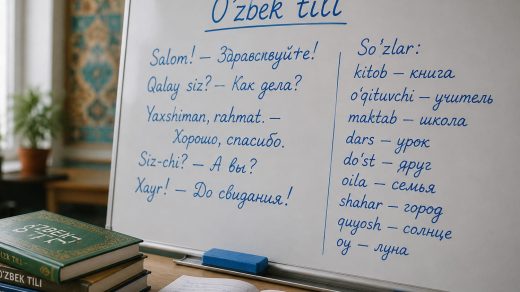 O'zbek tili
Salom! – Здравсвуйте!
Qalay siz? – Как дела?
Yaxshiman, rahmat. –
Хорошо, спасибо.
Siz-chi? – А вы?
Xayr! – До свидания!
So'zlar:
kitob – книга
o'qituvchi – учитель
maktab – школа
dars – урок
do'st – друг
oila – семья
shahar – город
quyosh – солнце
oy – луна
O'ZBEK TILI